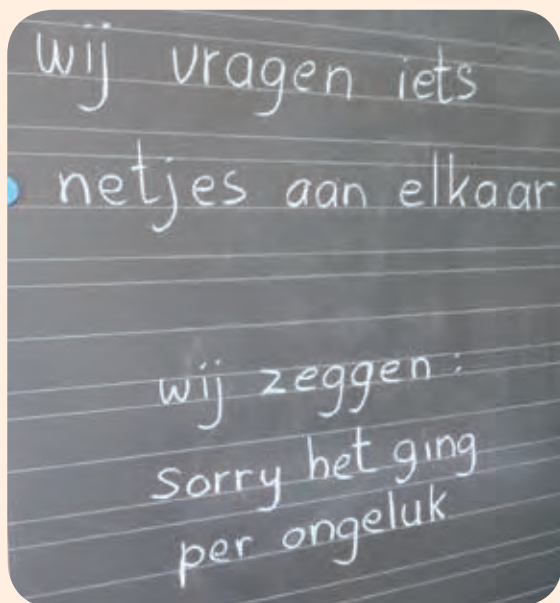 wij vragen iets
netjes aan elkaar
wij zeggen:
Sorry het ging
per ongeluk